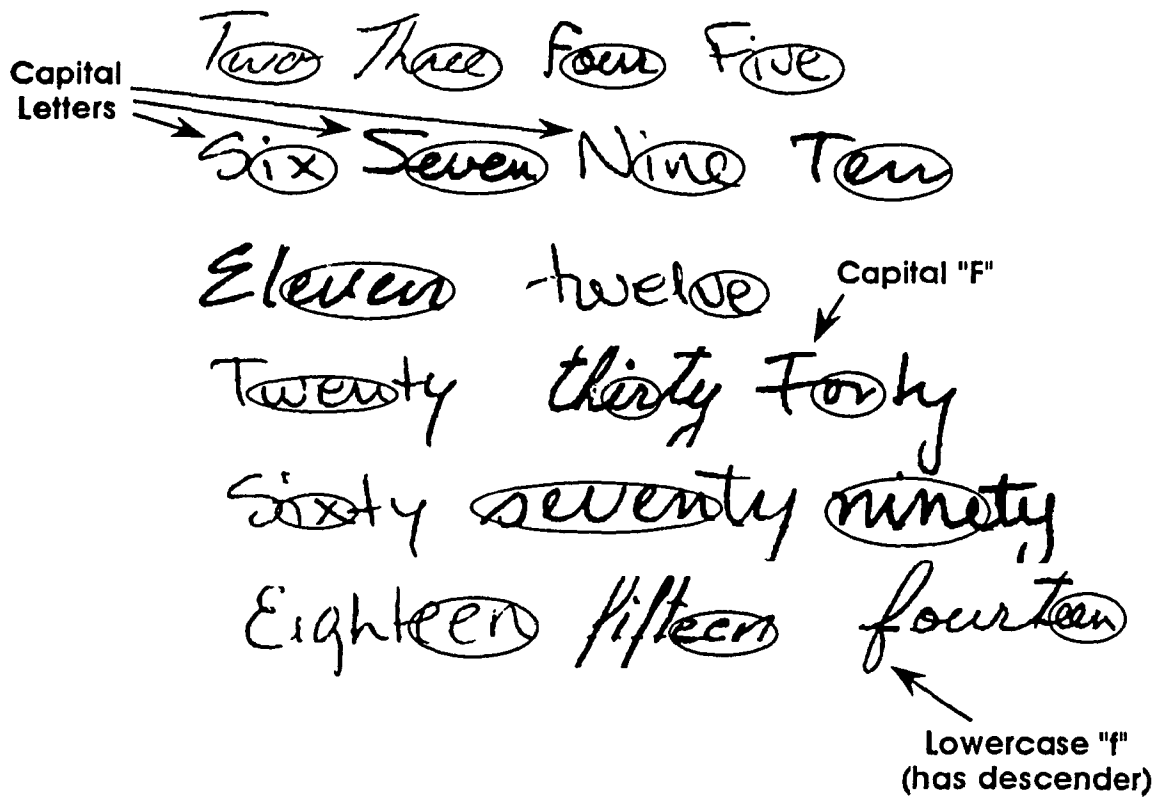 Two Three Four Five
Capital
Letters
Six Seven Nine Ten
Eleven twelve
Capital "F"
Twenty thirty Forty
Sixty seventy ninety
Eighteen fifteen fourteen
Lowercase "f"
(has descender)